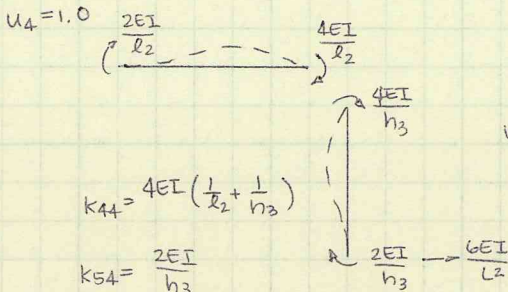 u₄ = 1.0
2EI/l₂
4EI/l₂
4EI/h₃
K₄₄ = 4EI (1/l₂ + 1/h₃)
K₅₄ = 2EI/h₃
2EI/h₃ → 6EI/L²